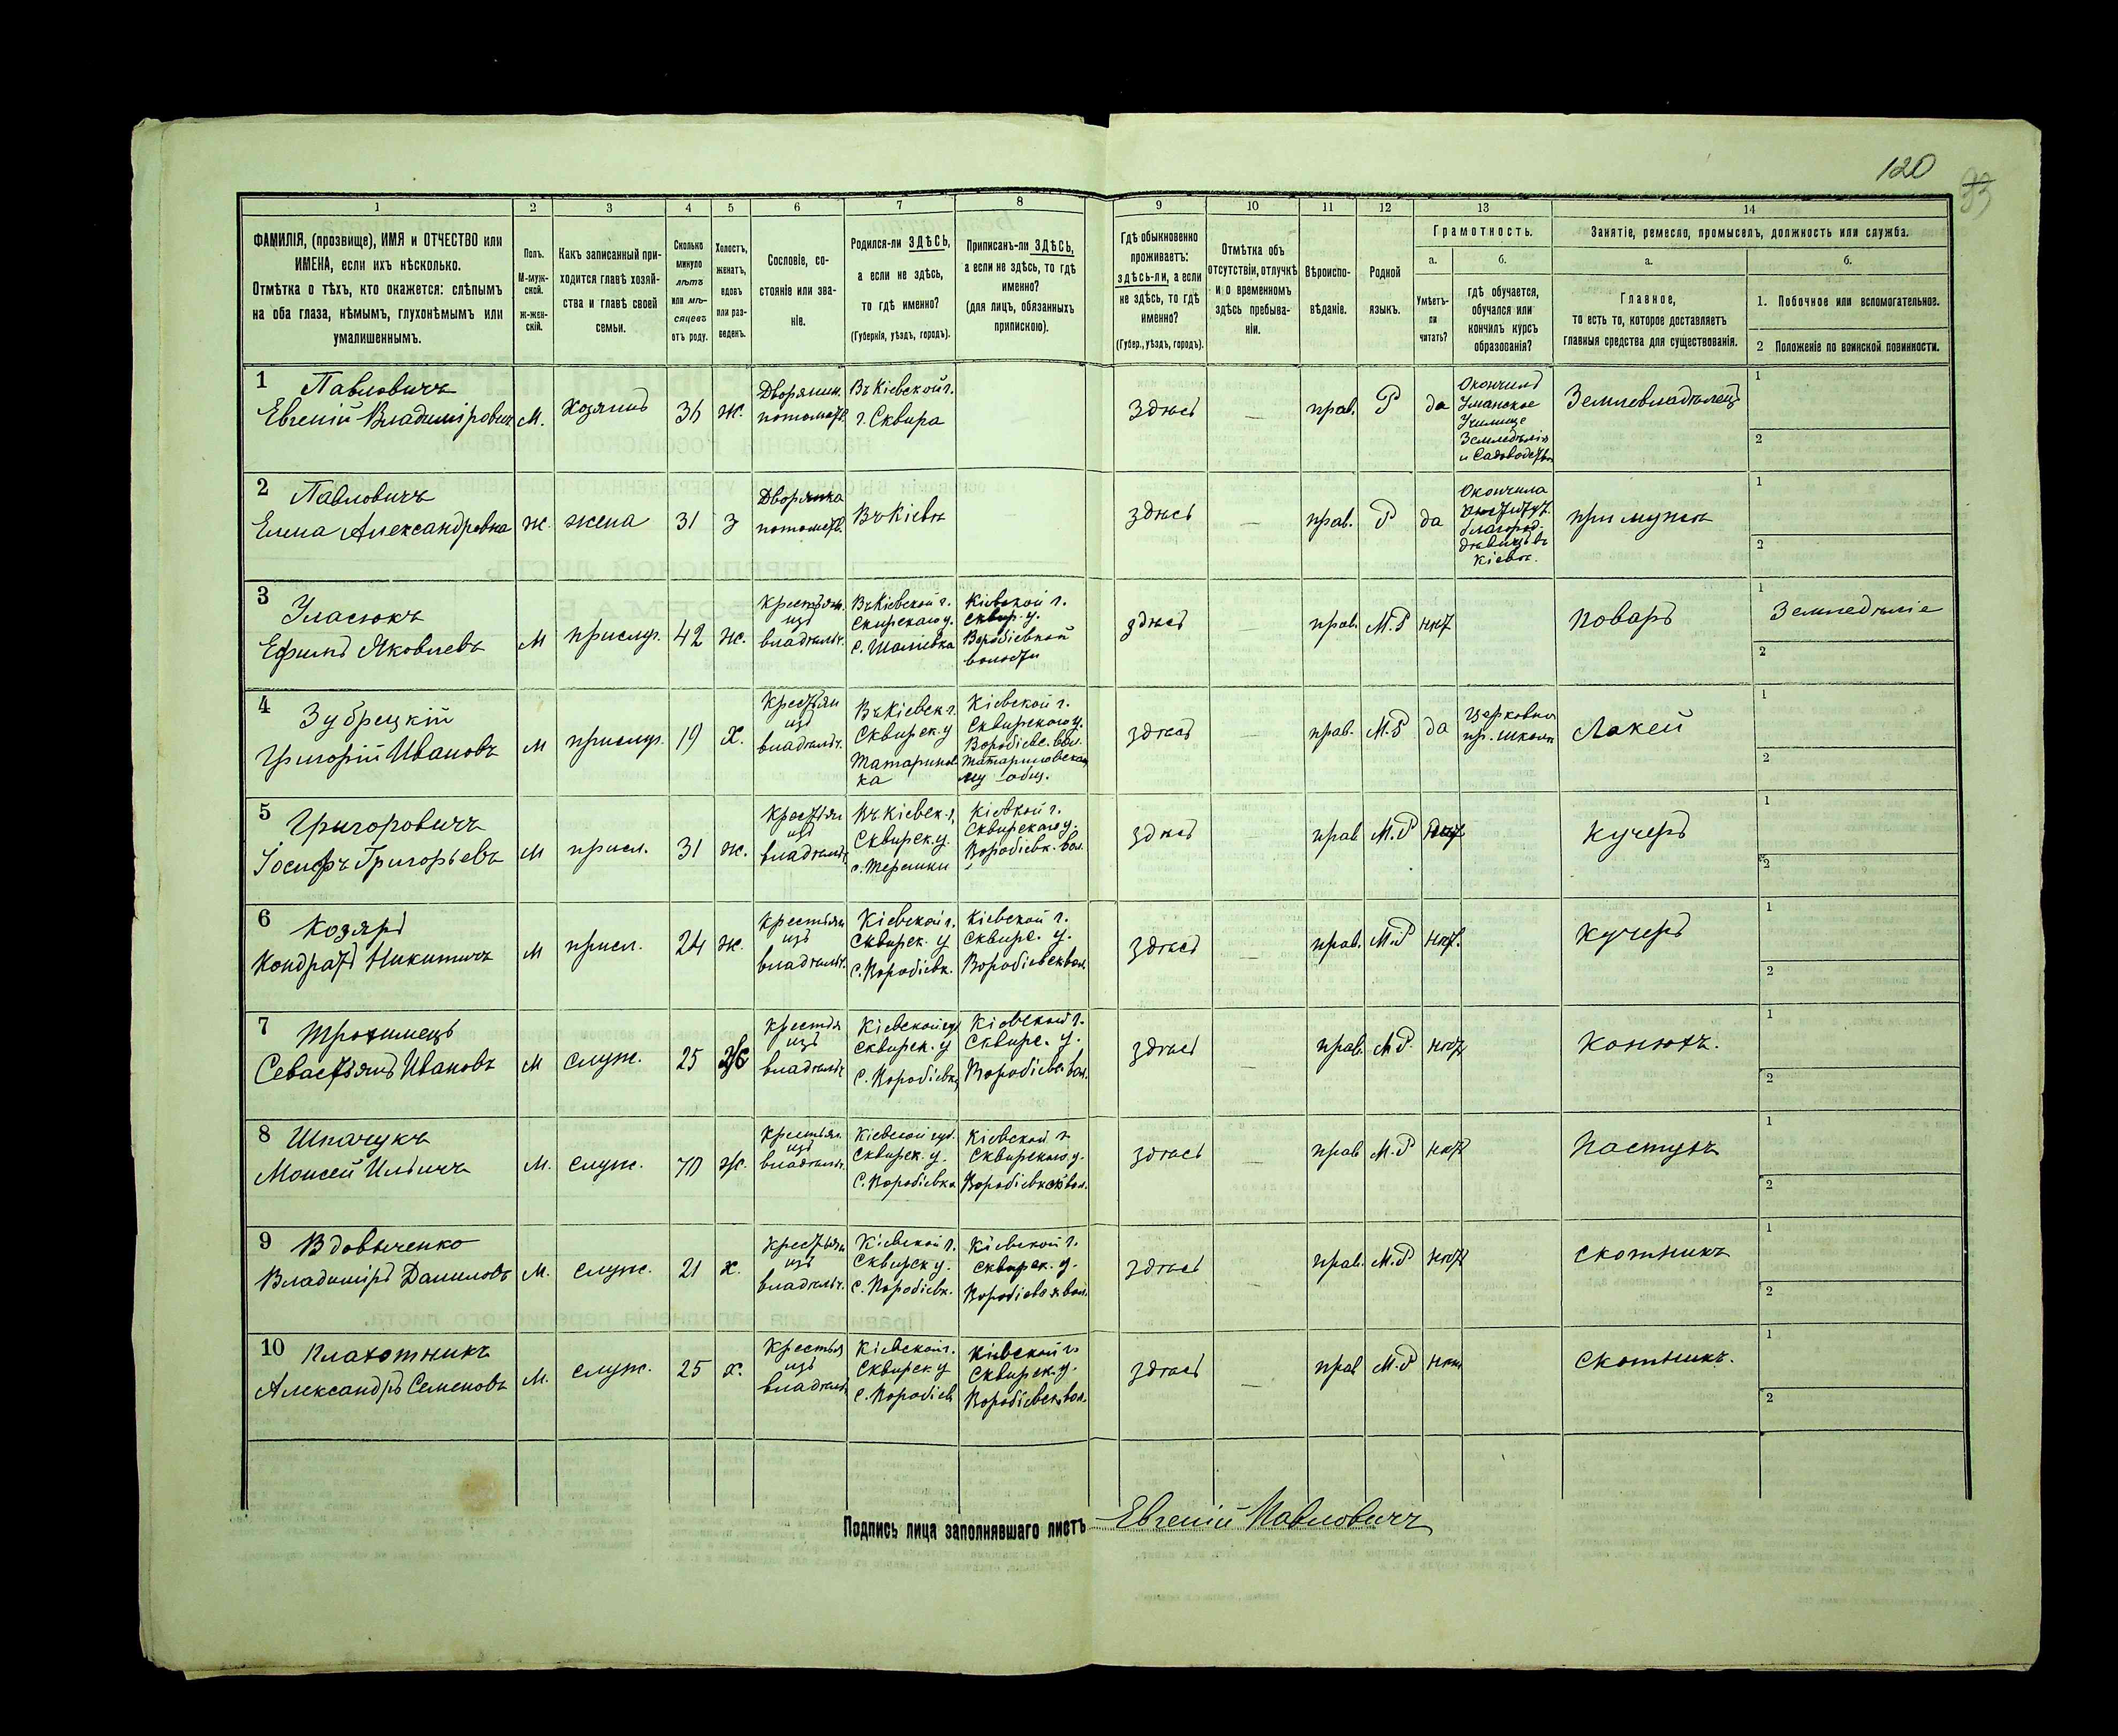 120
33
1
2
3
4
5
6
7
8
9
10
11
12
13
14
ФАМИЛІЯ, (прозвище), ИМЯ и ОТЧЕСТВО или
ИМЕНА, если ихъ нѣсколько.
Отмѣтка о тѣхъ, кто окажется: слѣпымъ
на оба глаза, нѣмымъ, глухонѣмымъ или
умалишеннымъ.
Полъ.
М-муж-
ской.
Ж-жен-
скій.
Какъ записанный при-
ходится главѣ хозяй-
ства и главѣ своей
семьи.
Сколько
минуло
лѣтъ
или мѣ-
сяцевъ
отъ роду.
Холостъ,
женатъ,
вдовъ
или раз-
веденъ.
Сословіе, со-
стояніе или зва-
ніе.
Родился-ли ЗДѢСЬ,
а если не здѣсь,
то гдѣ именно?
(Губернія, уѣздъ, городъ).
Приписанъ-ли ЗДѢСЬ,
а если не здѣсь, то гдѣ
именно?
(для лицъ, обязанныхъ
припискою).
Гдѣ обыкновенно
проживаетъ:
здѣсь-ли, а если
не здѣсь, то гдѣ
именно?
(Губер., уѣздъ, городъ).
Отмѣтка объ
отсутствіи, отлучкѣ
и о временномъ
здѣсь пребыва-
ніи.
Вѣроиспо-
вѣданіе.
Родной
языкъ.
Грамотность.
а.
Умѣетъ-
ли
читать?
б.
гдѣ обучается,
обучался или
кончилъ курсъ
образованія?
Занятіе, ремесло, промыселъ, должность или служба.
а.
Главное,
то есть то, которое доставляетъ
главныя средства для существованія.
б.
1. Побочное или вспомогательное.
2 Положеніе по воинской повинности.
1 Павловичъ
Евгеній Владиміровичъ
М.
хозяинъ
36
ж.
Дворянин.
потомств.
Въ Кіевской г.
г. Сквира
здѣсь
—
прав.
Р
да
Окончилъ
Уманское
Училище
Земледѣлія
и Садоводства
Землевладѣлецъ
1
2
2 Павловичъ
Елена Александровна
ж.
жена
31
з
Дворянка
потомств.
Въ Кіевѣ
здѣсь
—
прав.
Р
да
Окончила
Институт
благород.
дѣвицъ въ
Кіевѣ.
при мужѣ
1
2
3 Уласюкъ
Ефимъ Яковлевъ
М
прислуг.
42
ж.
Крестьян.
изъ
владѣльч.
Въ Кіевской г.
Сквирскаго у.
с. Шалівка
Кіевской г.
сквир. у.
Воробіевской
волости
здѣсь
—
прав.
М.Р
нѣт
Поваръ
1
Земледѣліе
2
4 Зубрецкій
Григорій Ивановъ
М
прислуг.
19
Х.
Крестьян
изъ
владѣльч.
Въ Кіевск г.
Сквирск. у
Татаринов
ка
Кіевской г.
Сквирскаго у.
Воробіевс. вол.
Татариновском
му общ.
здѣсь
—
прав.
М.Р
да
Церковно
пр. школѣ
Лакей
1
2
5 Григоровичъ
Іосифъ Григорьевъ
М
присл.
31
ж.
Крестьян
изъ
владѣльч.
Въ Кіевск. г.
Сквирск. у.
с. Терешки
Кіевской г.
Сквирскаго у.
Воробіевк. вол.
здѣсь
—
прав
М.Р
нѣт
Кучеръ
1
2
6 Козяръ
Кондратъ Никитичъ
М
присл.
24
ж.
Крестьян
изъ
владѣльч.
Кіевской г.
Сквирск. у
с. Воробіевк.
Кіевской г.
Сквирс. у.
Воробіевск вол.
здѣсь
—
прав.
М.Р
нѣт.
Кучеръ
1
2
7 Трохимецъ
Севастьянъ Ивановъ
М
служ.
25
Ж
Крестья
изъ
владѣльч
Кіевской губ
сквирск. у
с. Воробіевка
Кіевской г.
Сквирс. у.
Воробіевс. вол.
здѣсь
—
прав.
М.Р.
нѣт
Конюхъ.
1
2
8 Шпачукъ
Моисей Ильичъ
М.
служ.
70
Ж.
Крестьян.
изъ
владѣльч.
Кіевской губ.
Сквирск. у.
с. Воробіевка
Кіевской г.
Сквирскаго у.
Воробіевской вол.
здѣсь
—
прав
М.Р
нѣт
Пастухъ
1
2
9 Вдовиченко
Владиміръ Даниловъ
М.
служ.
21
х.
Крестьян
изъ
владѣльч.
Кіевской г.
Сквирск у.
с. Воробіевк.
Кіевской г.
сквирск. у.
Воробіевск вол.
здѣсь
—
прав.
М.Р
нѣт
скотникъ
1
2
10 Плахотникъ
Александръ Семеновъ
М.
служ.
25
х.
Крестья
изъ
владѣльч
Кіевской г.
Сквирск у
с. Воробіев
Кіевской г.
Сквирск. у.
Воробіевск. вол.
здѣсь
—
прав
М.Р
нѣт
Скотникъ.
1
2
Подпись лица заполнявшаго листъ Евгеній Павловичъ